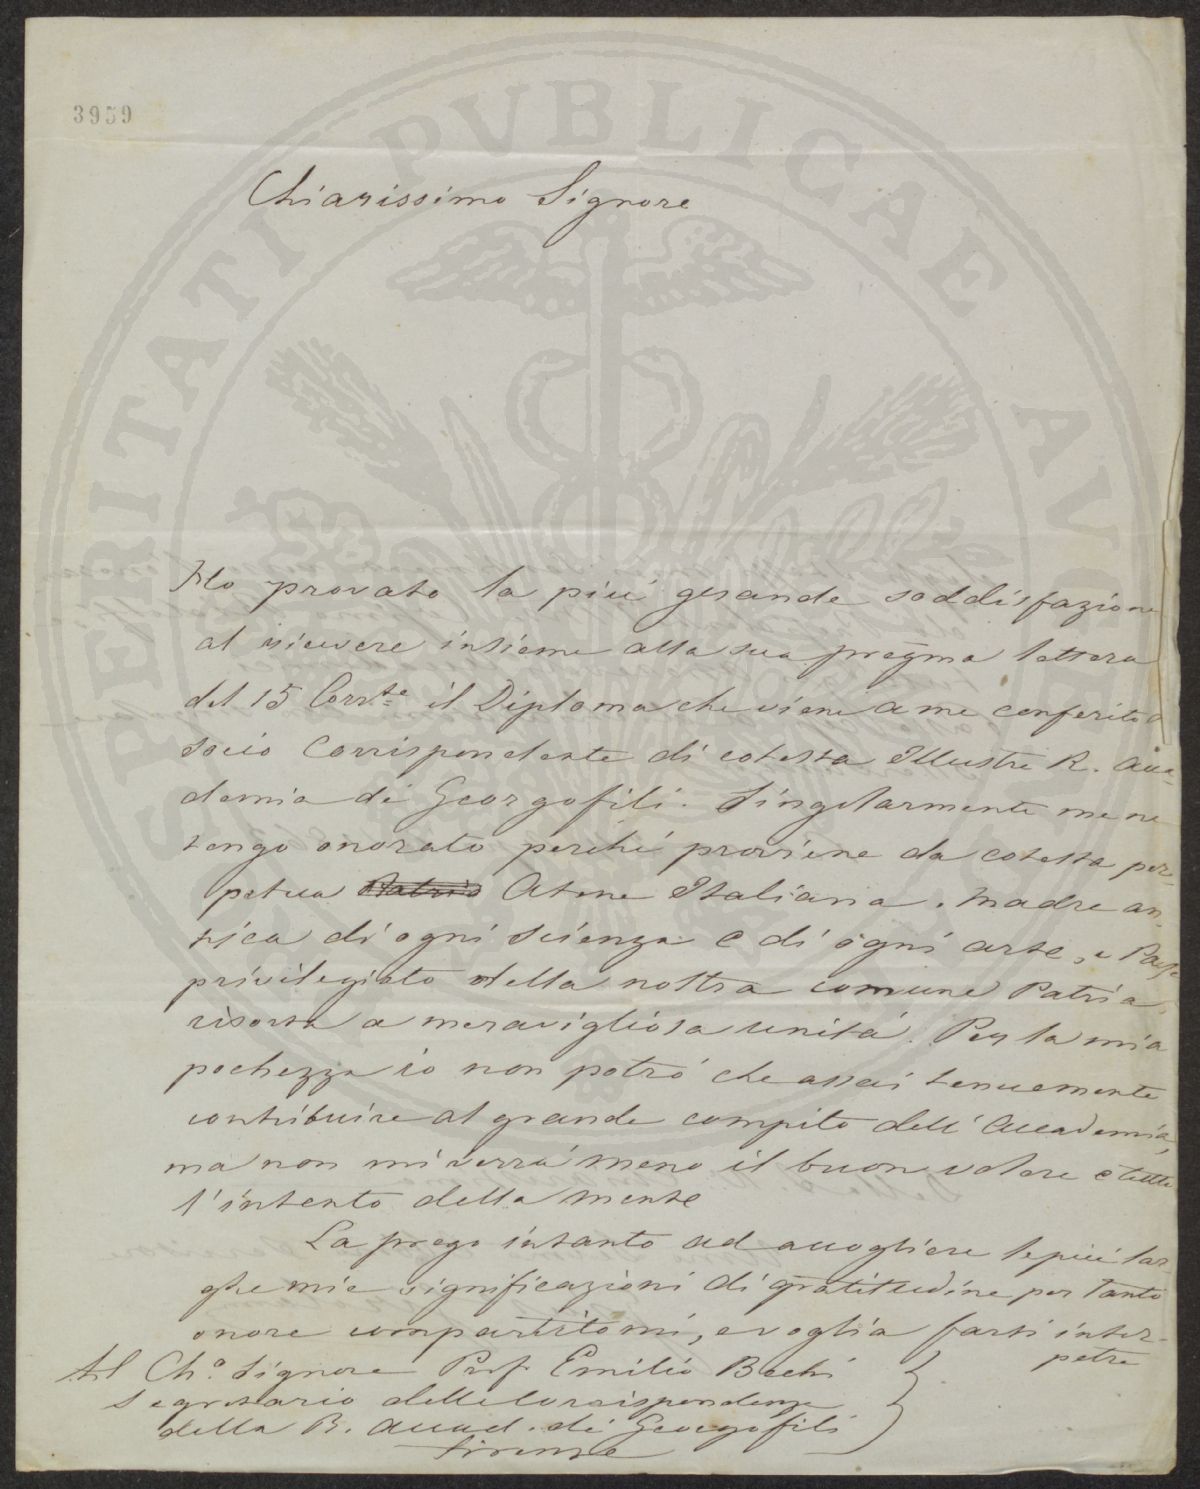 3959
Chiarissimo Signore
Ho provato la più grande soddisfazione
al ricevere insieme alla sua pregma lettera
del 15 Corrte il Diploma che viene a me conferito di
socio Corrispondente di cotesta Illustre R. Acca-
demia dei Georgofili. Singolarmente me ne
tengo onorato perchè proviene da cotesta per-
petua Atene Italiana, madre an-
tica di ogni scienza e di ogni arte, e Paese
privilegiato della nostra comune Patria,
risorta a meravigliosa unità. Per la mia
pochezza io non potrò che assai tenuemente
contribuire al grande compito dell'Accademia,
ma non mi verrà meno il buon volere e tutto
l'intento della mente
La prego intanto ad accogliere le più lar-
ghe mie significazioni di gratitudine per tanto
onore compartitomi, e voglia farsi inter-
petre
Al Cho. Signore Prof Emilio Bechi
Segretario delle Corrispondenze
della R. Accad. dei Georgofili
Firenze
PROSPERITATI PVBLICAE AVGENDAE